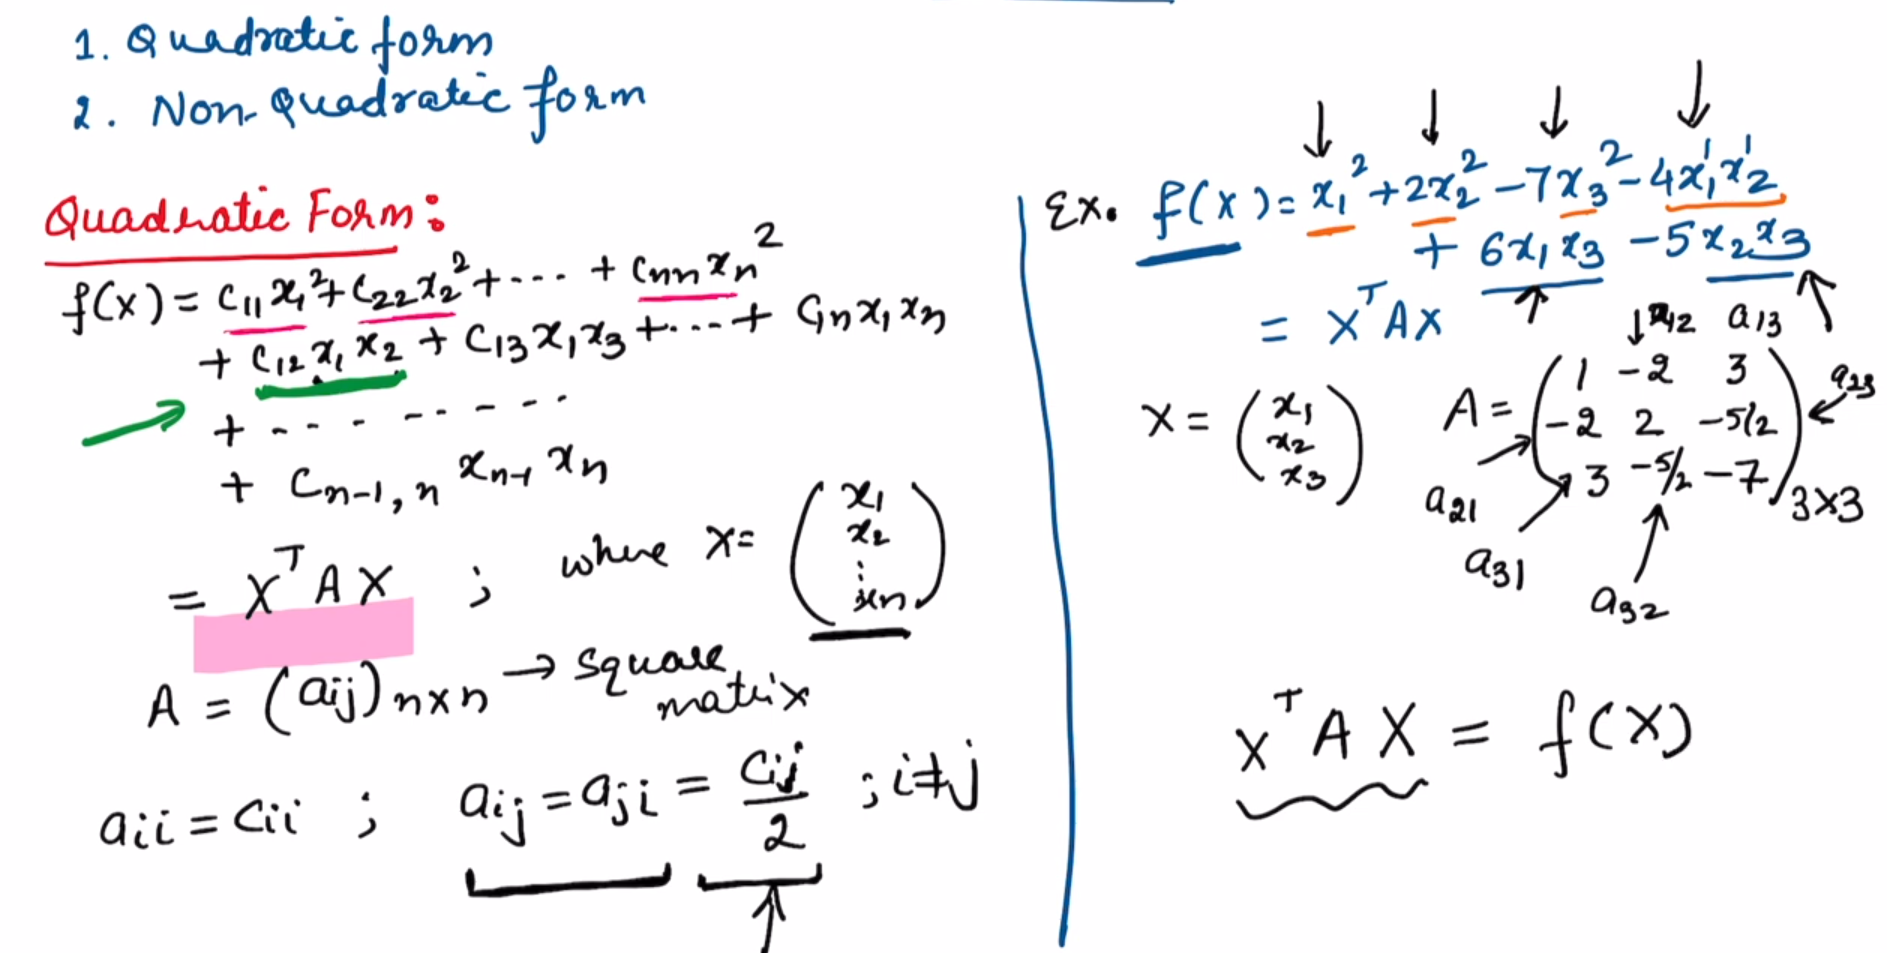 1. Quadratic form
2. Non-Quadratic form
Quadratic Form:
f(x) = c₁₁x₁² + c₂₂x₂² + ... + cₙₙxₙ²
+ c₁₂x₁x₂ + c₁₃x₁x₃ + ... + c₁ₙx₁xₙ
+ - - - - - - - -
+ cₙ₋₁,ₙ xₙ₋₁ xₙ
= XᵀAX ; where X = (x₁ x₂ ⋮ xₙ)
A = (aij)n×n → square matrix
aii = cii ; aij = aji = cij/2 ; i≠j
Ex. f(x) = x₁² + 2x₂² - 7x₃² - 4x₁¹x₂¹
+ 6x₁x₃ - 5x₂x₃
= XᵀAX
↓ 12 a₁₃
X = (x₁ x₂ x₃)
A = (1 -2 3
-2 2 -5/2
3 -5/2 -7)3×3
a₂₃
a₂₁
a₃₁
a₃₂
XᵀAX = f(X)